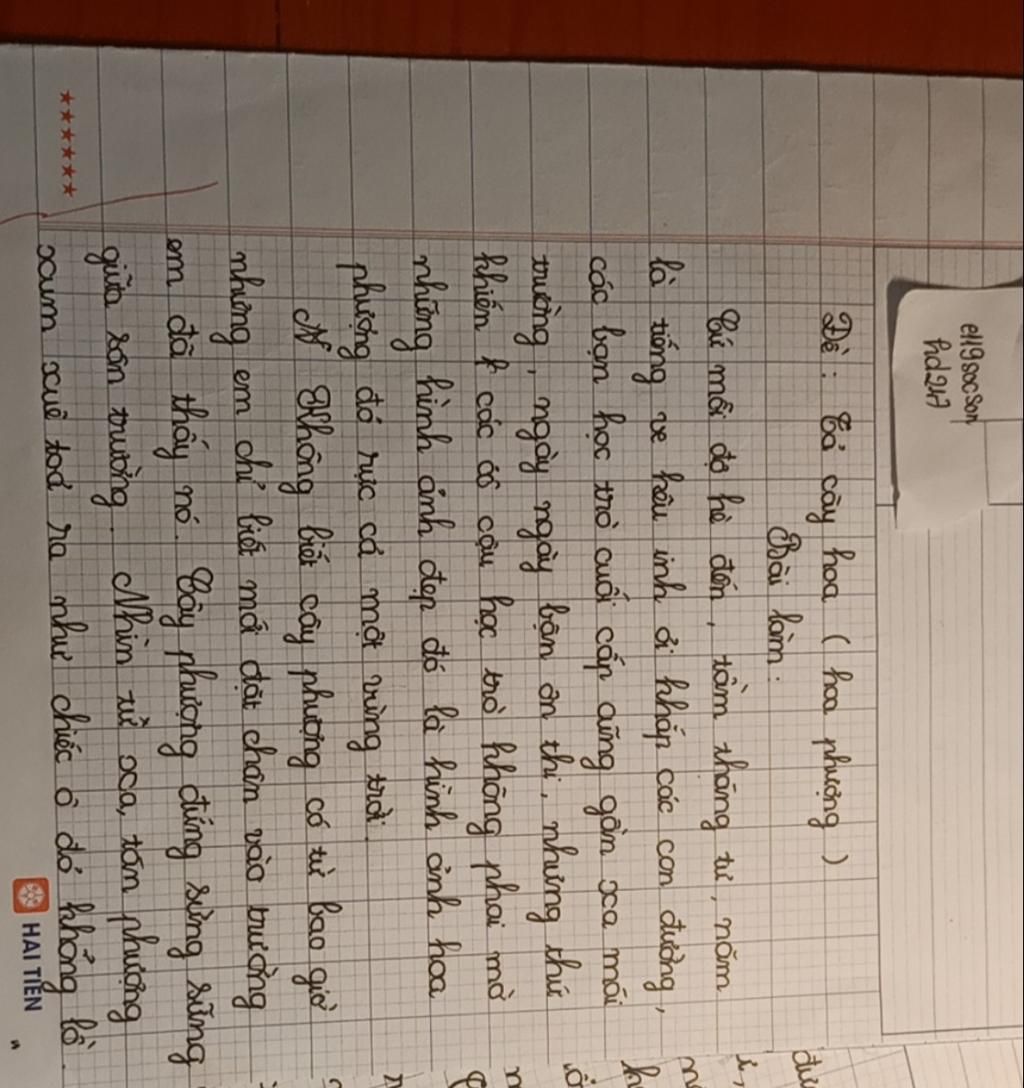 eH19socson
hd247
Đề: Tả cây hoa ( hoa phượng )
Bài làm:
Cứ mỗi độ hè đến, tầm tháng tư, năm
là tiếng ve kêu inh ỏi khắp các con đường,
các bạn học trò cuối cấp cũng gần xa mái
trường, ngày ngày bận ôn thi, nhưng thứ
khiến các cô cậu học trò không phai mờ
những hình ảnh đẹp đó là hình ảnh hoa
phượng đỏ rực cả một vùng trời.
N Không biết cây phượng có từ bao giờ
nhưng em chỉ biết mới đặt chân vào trường
em đã thấy nó. Cây phượng đứng sừng sững
giữa sân trường. Nhìn từ xa, tán phượng
xum xuê toả ra như chiếc ô đỏ khổng lồ.
HAI TIEN